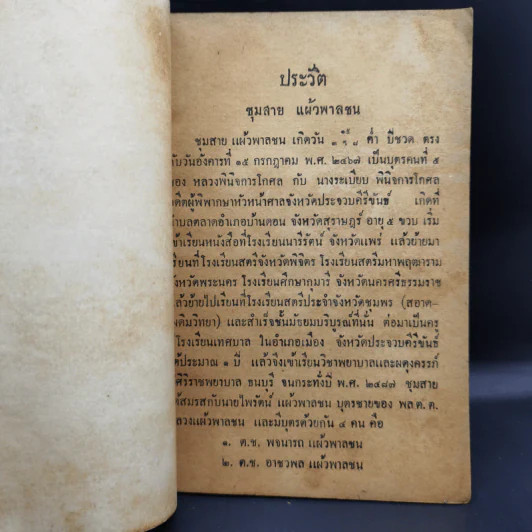 ประวัติ
ชุมสาย แผ้วพาลชน
ชุมสาย แผ้วพาลชน เกิดวัน ค่ำ ปีชวด ตรง
กับวันอังคารที่ ๑๕ กรกฎาคม พ.ศ. ๒๔๖๗ เป็นบุตรคนที่ ๕
ของ หลวงพินิจการโกศล กับ นางระเบียบ พินิจการโกศล
อดีตผู้พิพากษาหัวหน้าศาลจังหวัดประจวบคีรีขันธ์ เกิดที่
ตำบลตลาดอำเภอบ้านดอน จังหวัดสุราษฎร์ อายุ ๕ ขวบ เริ่ม
เข้าเรียนหนังสือที่โรงเรียนนารีรัตน์ จังหวัดแพร่ แล้วย้ายมา
เรียนที่โรงเรียนสตรีจังหวัดพิจิตร โรงเรียนสตรีมหาพฤฒาราม
จังหวัดพระนคร โรงเรียนศึกษากุมารี จังหวัดนครศรีธรรมราช
แล้วย้ายไปเรียนที่โรงเรียนสตรีประจำจังหวัดชุมพร (สอาด-
เผดิมวิทยา) และสำเร็จชั้นมัธยมบริบูรณ์ที่นั่น ต่อมาเป็นครู
โรงเรียนเทศบาล ในอำเภอเมือง จังหวัดประจวบคีรีขันธ์
ได้ประมาณ ๑ ปี แล้วจึงเข้าเรียนวิชาพยาบาลและผดุงครรภ์
ศิริราชพยาบาล ธนบุรี จนกระทั่งปี พ.ศ. ๒๔๘๗ ชุมสาย
ได้สมรสกับนายไพรัตน์ แผ้วพาลชน บุตรชายของ พล.ต.ต.
หลวงแผ้วพาลชน และมีบุตรด้วยกัน ๔ คน คือ
๑. ด.ช. พจนารถ แผ้วพาลชน
๒. ด.ช. อาชวพล แผ้วพาลชน